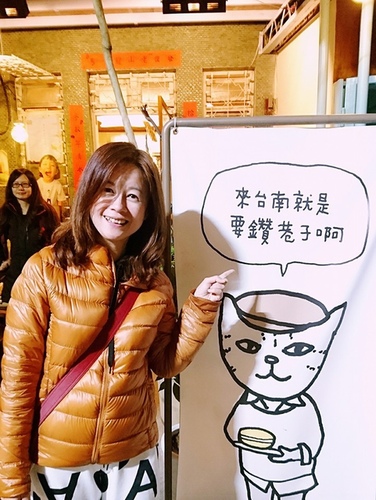 來台南就是
要鑽巷子啊